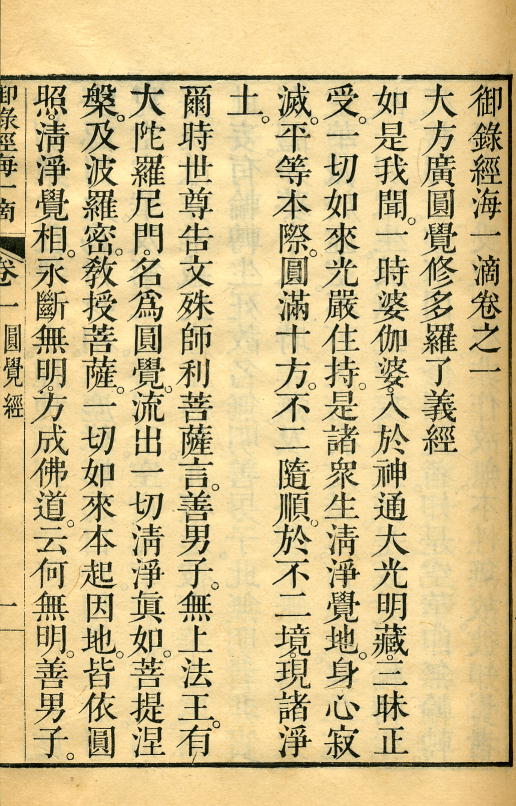 御錄經海一滴卷之一
大方廣圓覺修多羅了義經
如是我聞。一時婆伽婆。入於神通大光明藏。三昧正
受。一切如來光嚴住持。是諸衆生清淨覺地。身心寂
滅。平等本際。圓滿十方。不二隨順。於不二境。現諸淨
土。
爾時世尊吿文殊師利菩薩言。善男子。無上法王。有
大陀羅尼門。名爲圓覺。流出一切清淨眞如。菩提涅
槃。及波羅密。敎授菩薩。一切如來本起因地。皆依圓
照。清淨覺相。永斷無明。方成佛道。云何無明。善男子。
御錄經海一滴 卷一 圓覺經 一